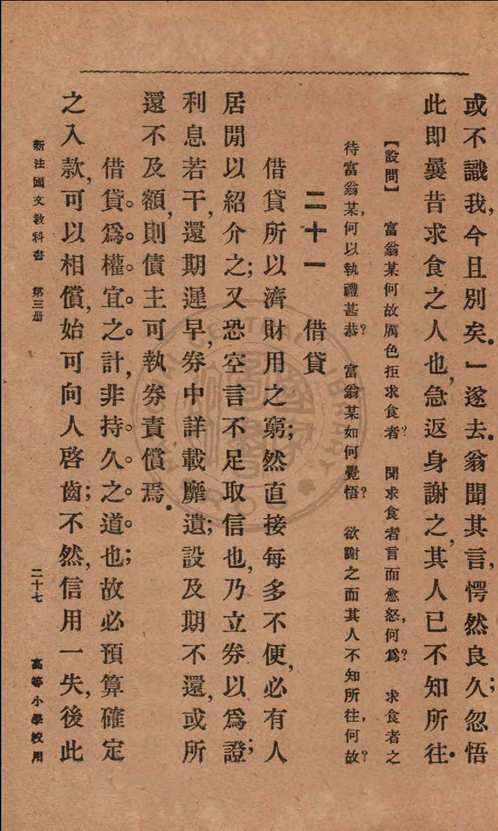 或不識我今且別矣。」遂去。翁聞其言，愕然良久；忽悟
此即曩昔求食之人也，急返身謝之，其人已不知所往。
【設問】　富翁某何故厲色拒求食者？　聞求食者言而愈怒，何爲？　求食者之
待富翁某，何以執禮甚恭？　富翁某如何覺悟？　欲謝之而其人不知所往，何故？
二十一　借貸
借貸所以濟財用之窮；然直接每多不便，必有人
居閒以紹介之；又恐空言不足取信也，乃立券以爲證；
利息若干，還期遲早，券中詳載靡遺；設及期不還，或所
還不及額，則債主可執券責償焉。
借貸爲權宜之計，非持久之道也；故必預算確定
之入款，可以相償，始可向人啓齒；不然，信用一失，後此
新法國文教科書　第三册　二十七　高等小學校用